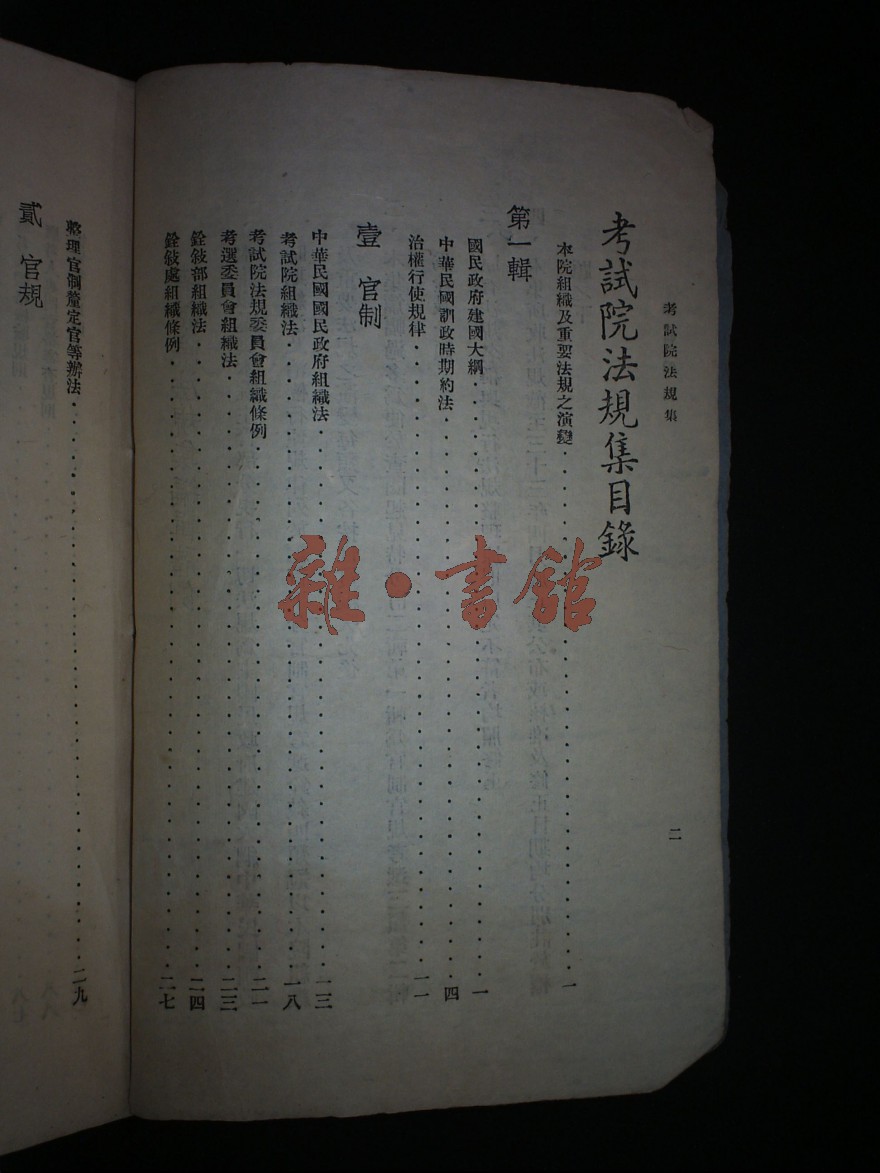 考試院法規集
二
考試院法規集目錄
本院組織及重要法規之演變 一
第一輯
國民政府建國大綱 一
中華民國訓政時期約法 四
治權行使規律 一一
壹 官制
中華民國國民政府組織法 一三
考試院組織法 一八
考試院法規委員會組織條例 二一
考選委員會組織法 二三
銓敍部組織法 二四
銓敍處組織條例 二七
貳 官規
整理官制釐定官等辦法 二九
雜·書館